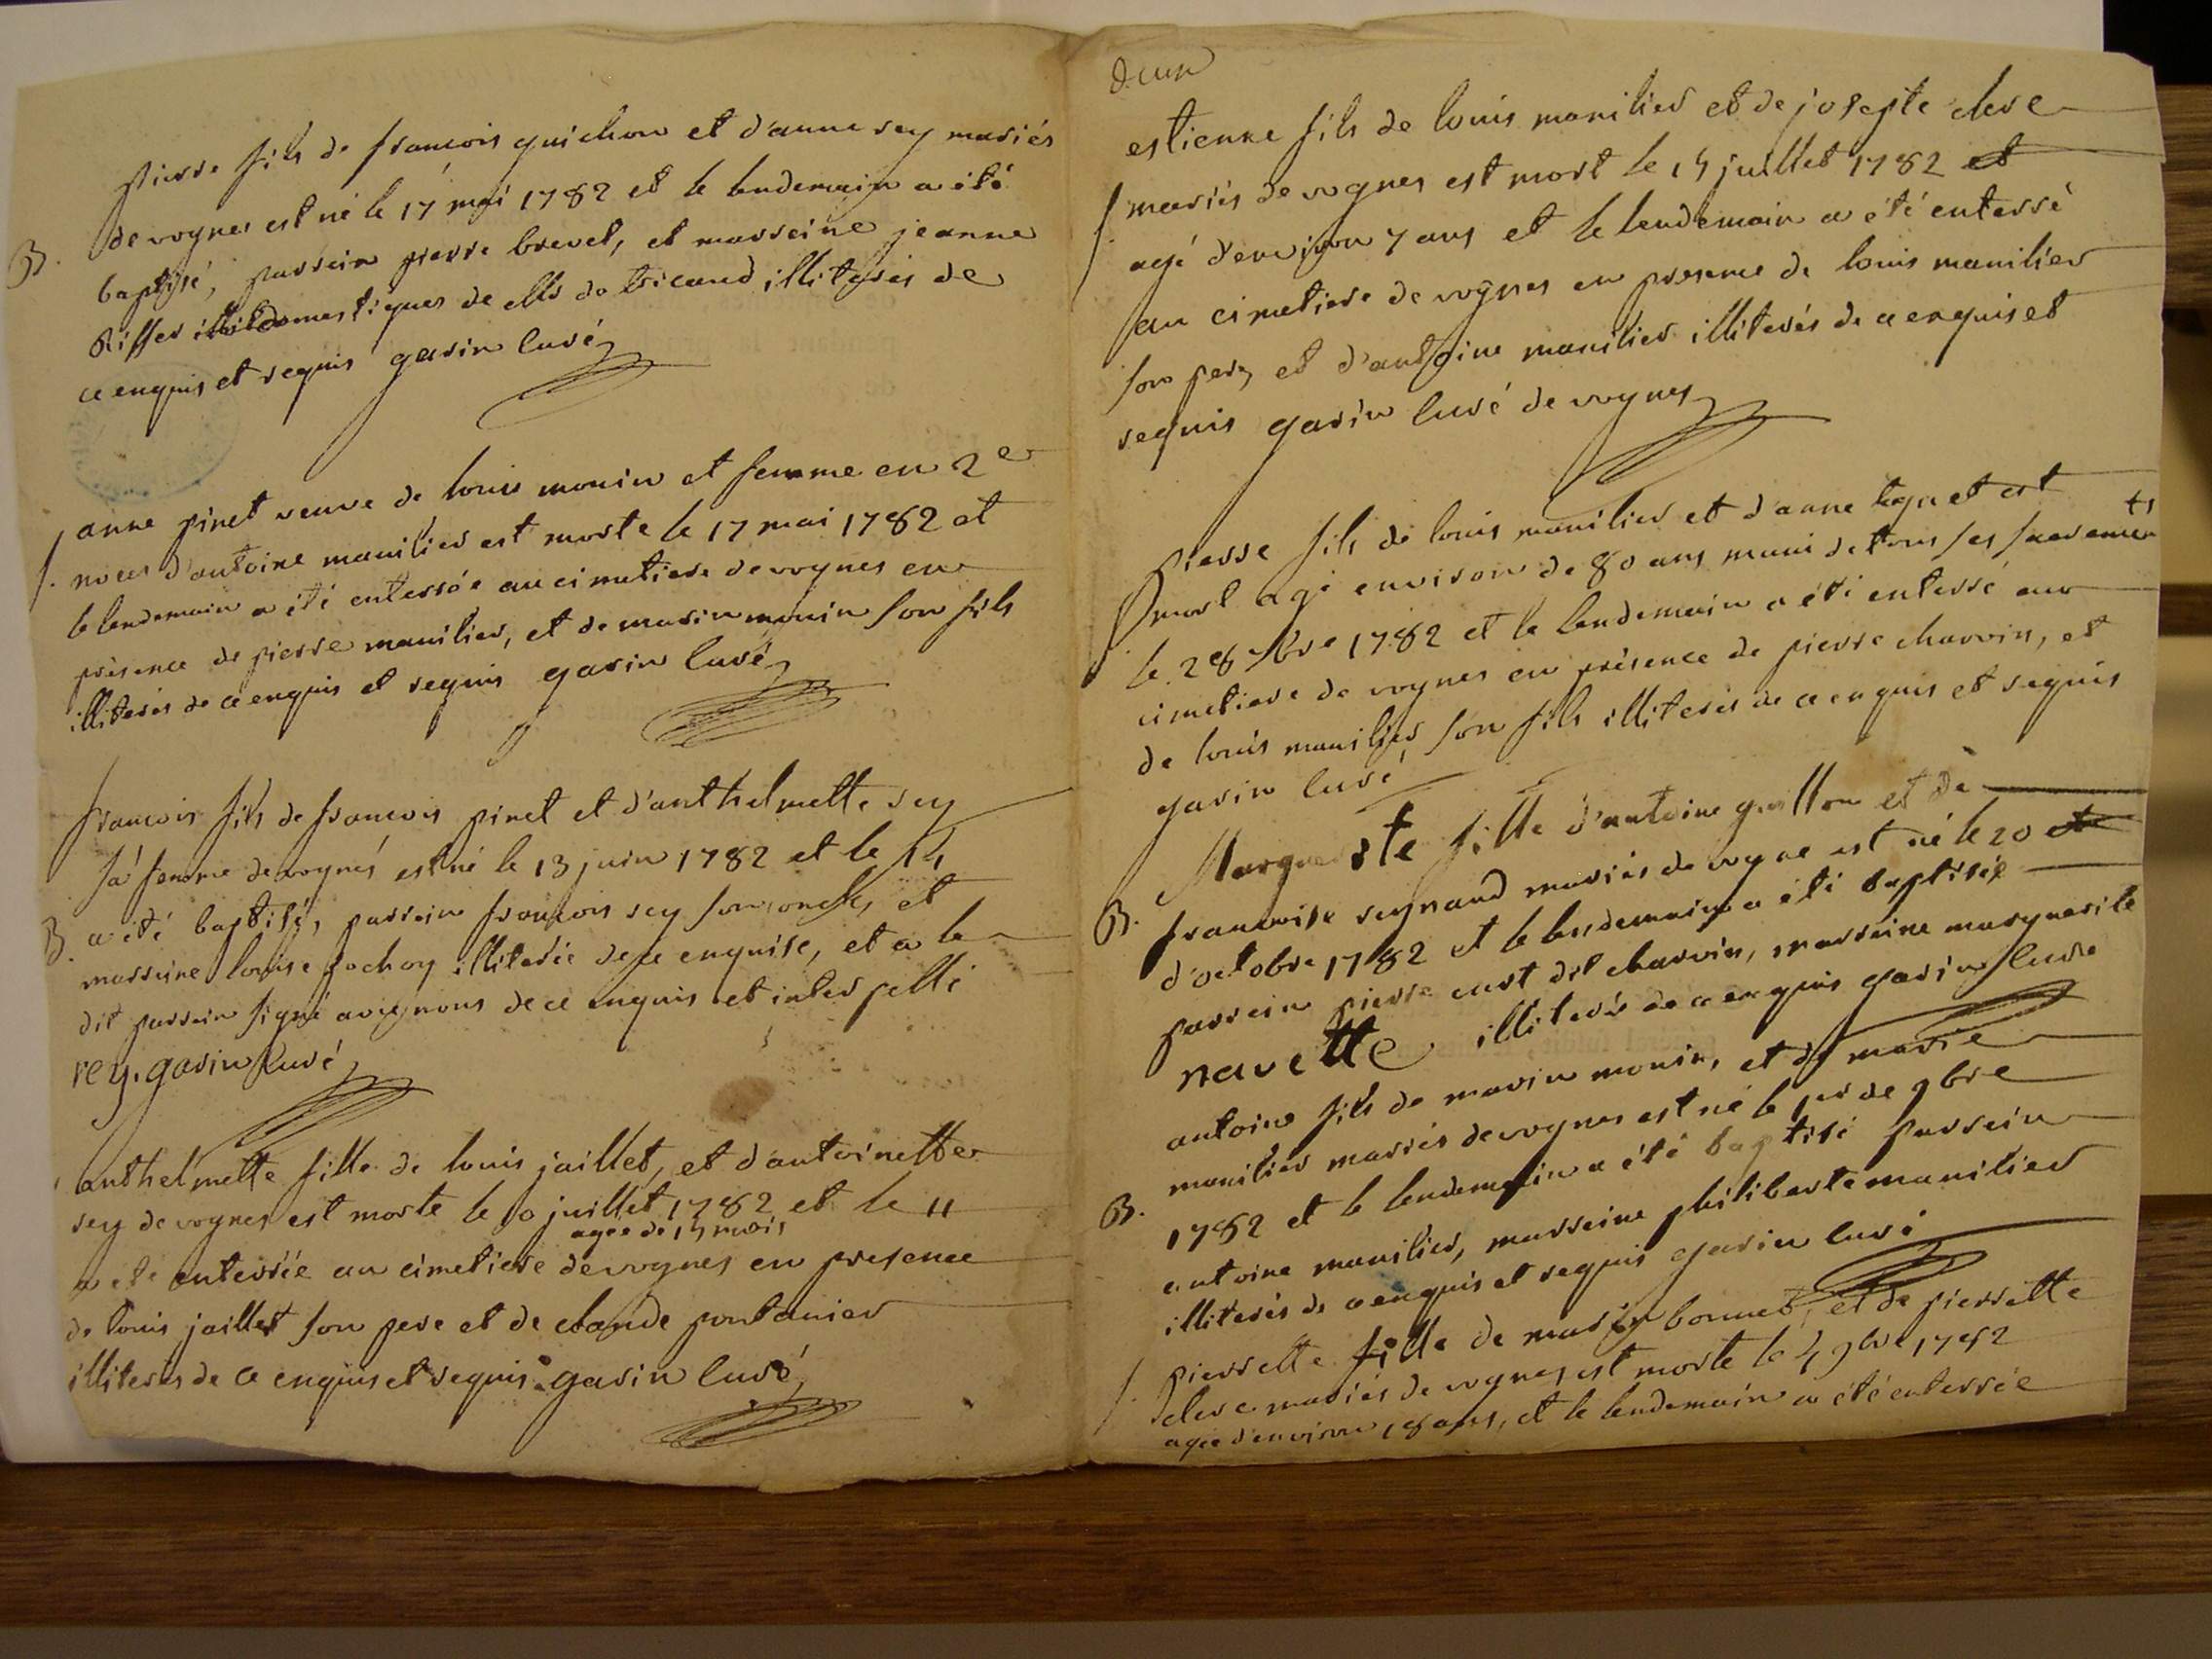 pierre fils de francois guichon et d'anne rey mariés
B. de vognes est né le 17 mai 1782 et le lendemain a été
baptisé, parrein pierre brevet, et marreine jeanne
domestiques de de tricaud illiterés de
ce enquis et requis garin curé
anne pinet veuve de louis monin et femme en 2e
f. noces d'antoine manilier est morte le 17 mai 1782 et
le lendemain a été enterrée au cimetiere de vognes en
présence de pierre manilier, et de marin monin son fils
illiterés de ce enquis et requis garin curé
francois fils de francois pinet et d'anthelmette rey
sa femme de vognes est né le 13 juin 1782 et le 14
B. a été baptisé, parrein francois rey son oncle, et
marreine louise jochoy illiterée de ce enquise, et a le
dit parrein signé avec nous de ce enquis et interpellé
rey. garin curé
anthelmette fille de louis jaillet, et d'antoinette
rey de vognes est morte le 10 juillet 1782 et le 11
agée de 15 mois
a eté enterrée au cimetiere de vognes en presence
de louis jaillet son pere et de claude pontanier
illiterés de ce enquis et requis garin curé
deux
estienne fils de louis manilier et de josepte clere
f. mariés de vognes est mort le 15 juillet 1782 et
agé d'environ 7 ans et le lendemain a été enterré
au cimetiere de vognes en presence de louis manilier
son pere, et d'antoine manilier illiterés de ce enquis et
requis garin curé de vognes
pierre fils de louis manilier et d'anne est
f. mort agé environ de 80 ans muni de tous ses sacrements
le 28 7bre 1782 et le lendemain a été enterré au
cimetiere de vognes en présence de pierre charvin, et
de louis manilier son fils illiterés de ce enquis et requis
garin curé
Marguerite fille d'antoine guillon et de
B. francoise reynaud mariés de vogne est né le 20
d'octobre 1782 et le lendemain a été baptisée
parrein pierre curt dit charvin, marreine marguerite
navette illiterés de ce enquis garin curé
antoine fils de marin monin, et de marie
manilier mariés de vognes est né le 1er de 9bre
B. 1782 et le lendemain a été baptisé parrein
antoine manilier, marreine philiberte manilier
illiterés de ce enquis et requis garin curé
pierrette fille de marin bonnet, et de pierrette
f. clere mariés de vognes est morte le 4 9bre 1782
agée d'environ 18 ans, et le lendemain a été enterrée